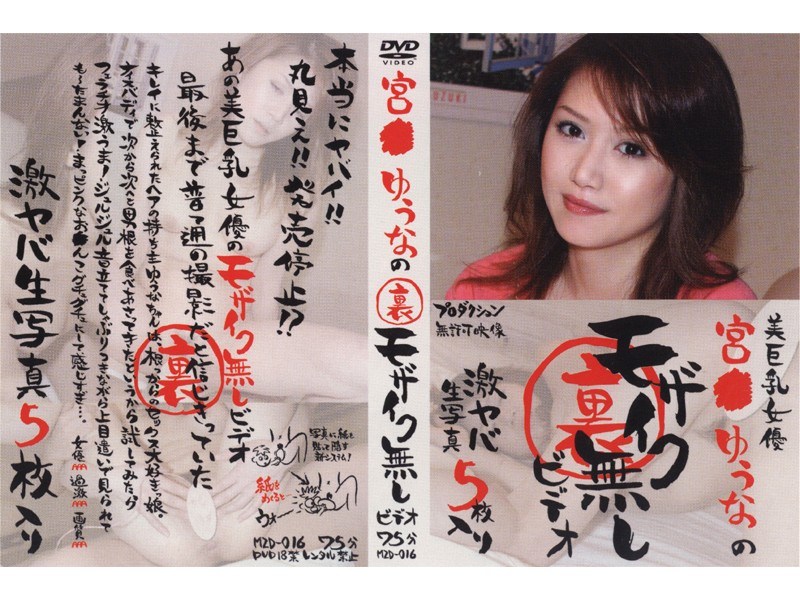 本当にヤバイ!!
丸見え!!発売停止!?
あの美巨乳女優のモザイク無しビデオ
最後まで普通の撮影だと信じきっていた
キレイに整えられたヘアの持ち主ゆうなちゃんは、根っからのセックス大好きっ娘。
ナイスバディで次から次へと男根を食べあさってきたというから試してみたが
フェラチオ激うま!ジュルジュル音立ててしゃぶりつきながら上目遣いで見られて
も〜たまんない!まっピンクなお●んこグチュグチュにして感じすぎ…。
女優AAA 過激AAA 画質AA
激ヤバ生写真5枚入り
裏
写真に紙を
貼って隠す
新システム!
紙を
めくると
ウォー
MZD-016 75分
DVD 18禁 レンタル禁止
DVD
VIDEO
宮● ゆうなの
裏
モザイク無し
ビデオ
75分
MZD-016
UZUKI
美巨乳女優
宮● ゆうなの
裏
モザイク無し
ビデオ
プロダクション
無許可映像
激ヤバ
生写真
5枚
入り